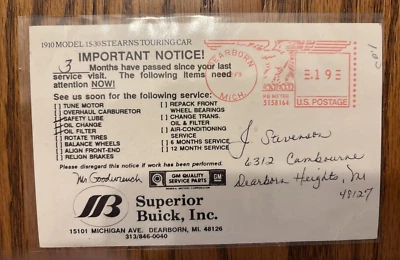 1910 MODEL 15-30 STEARNS TOURING CAR
IMPORTANT NOTICE!
3 Months have passed since your last
service visit. The following items need
attention NOW!
See us soon for the following service:
TUNE MOTOR
OVERHAUL CARBURETOR
SAFETY LUBE
OIL CHANGE
OIL FILTER
ROTATE TIRES
BALANCE WHEELS
ALIGN FRONT-END
RELIGN BRAKES
REPACK FRONT
WHEEL BEARINGS
CHANGE TRANS.
OIL & FILTER
AIR-CONDITIONING
SERVICE
6 MONTHS SERVICE
12 MONTH SERVICE
Please disregard this notice if work has been performed.
Mr. Goodwrench
GM QUALITY
SERVICE PARTS
GM
Superior
Buick, Inc.
15101 MICHIGAN AVE. DEARBORN, MI. 48126
313/846-0040
DEARBORN
MICH.
PB METER
5158164
.19
U.S. POSTAGE
J. Stevenson
6312 Cambourne
Dearborn Heights, MI
48127